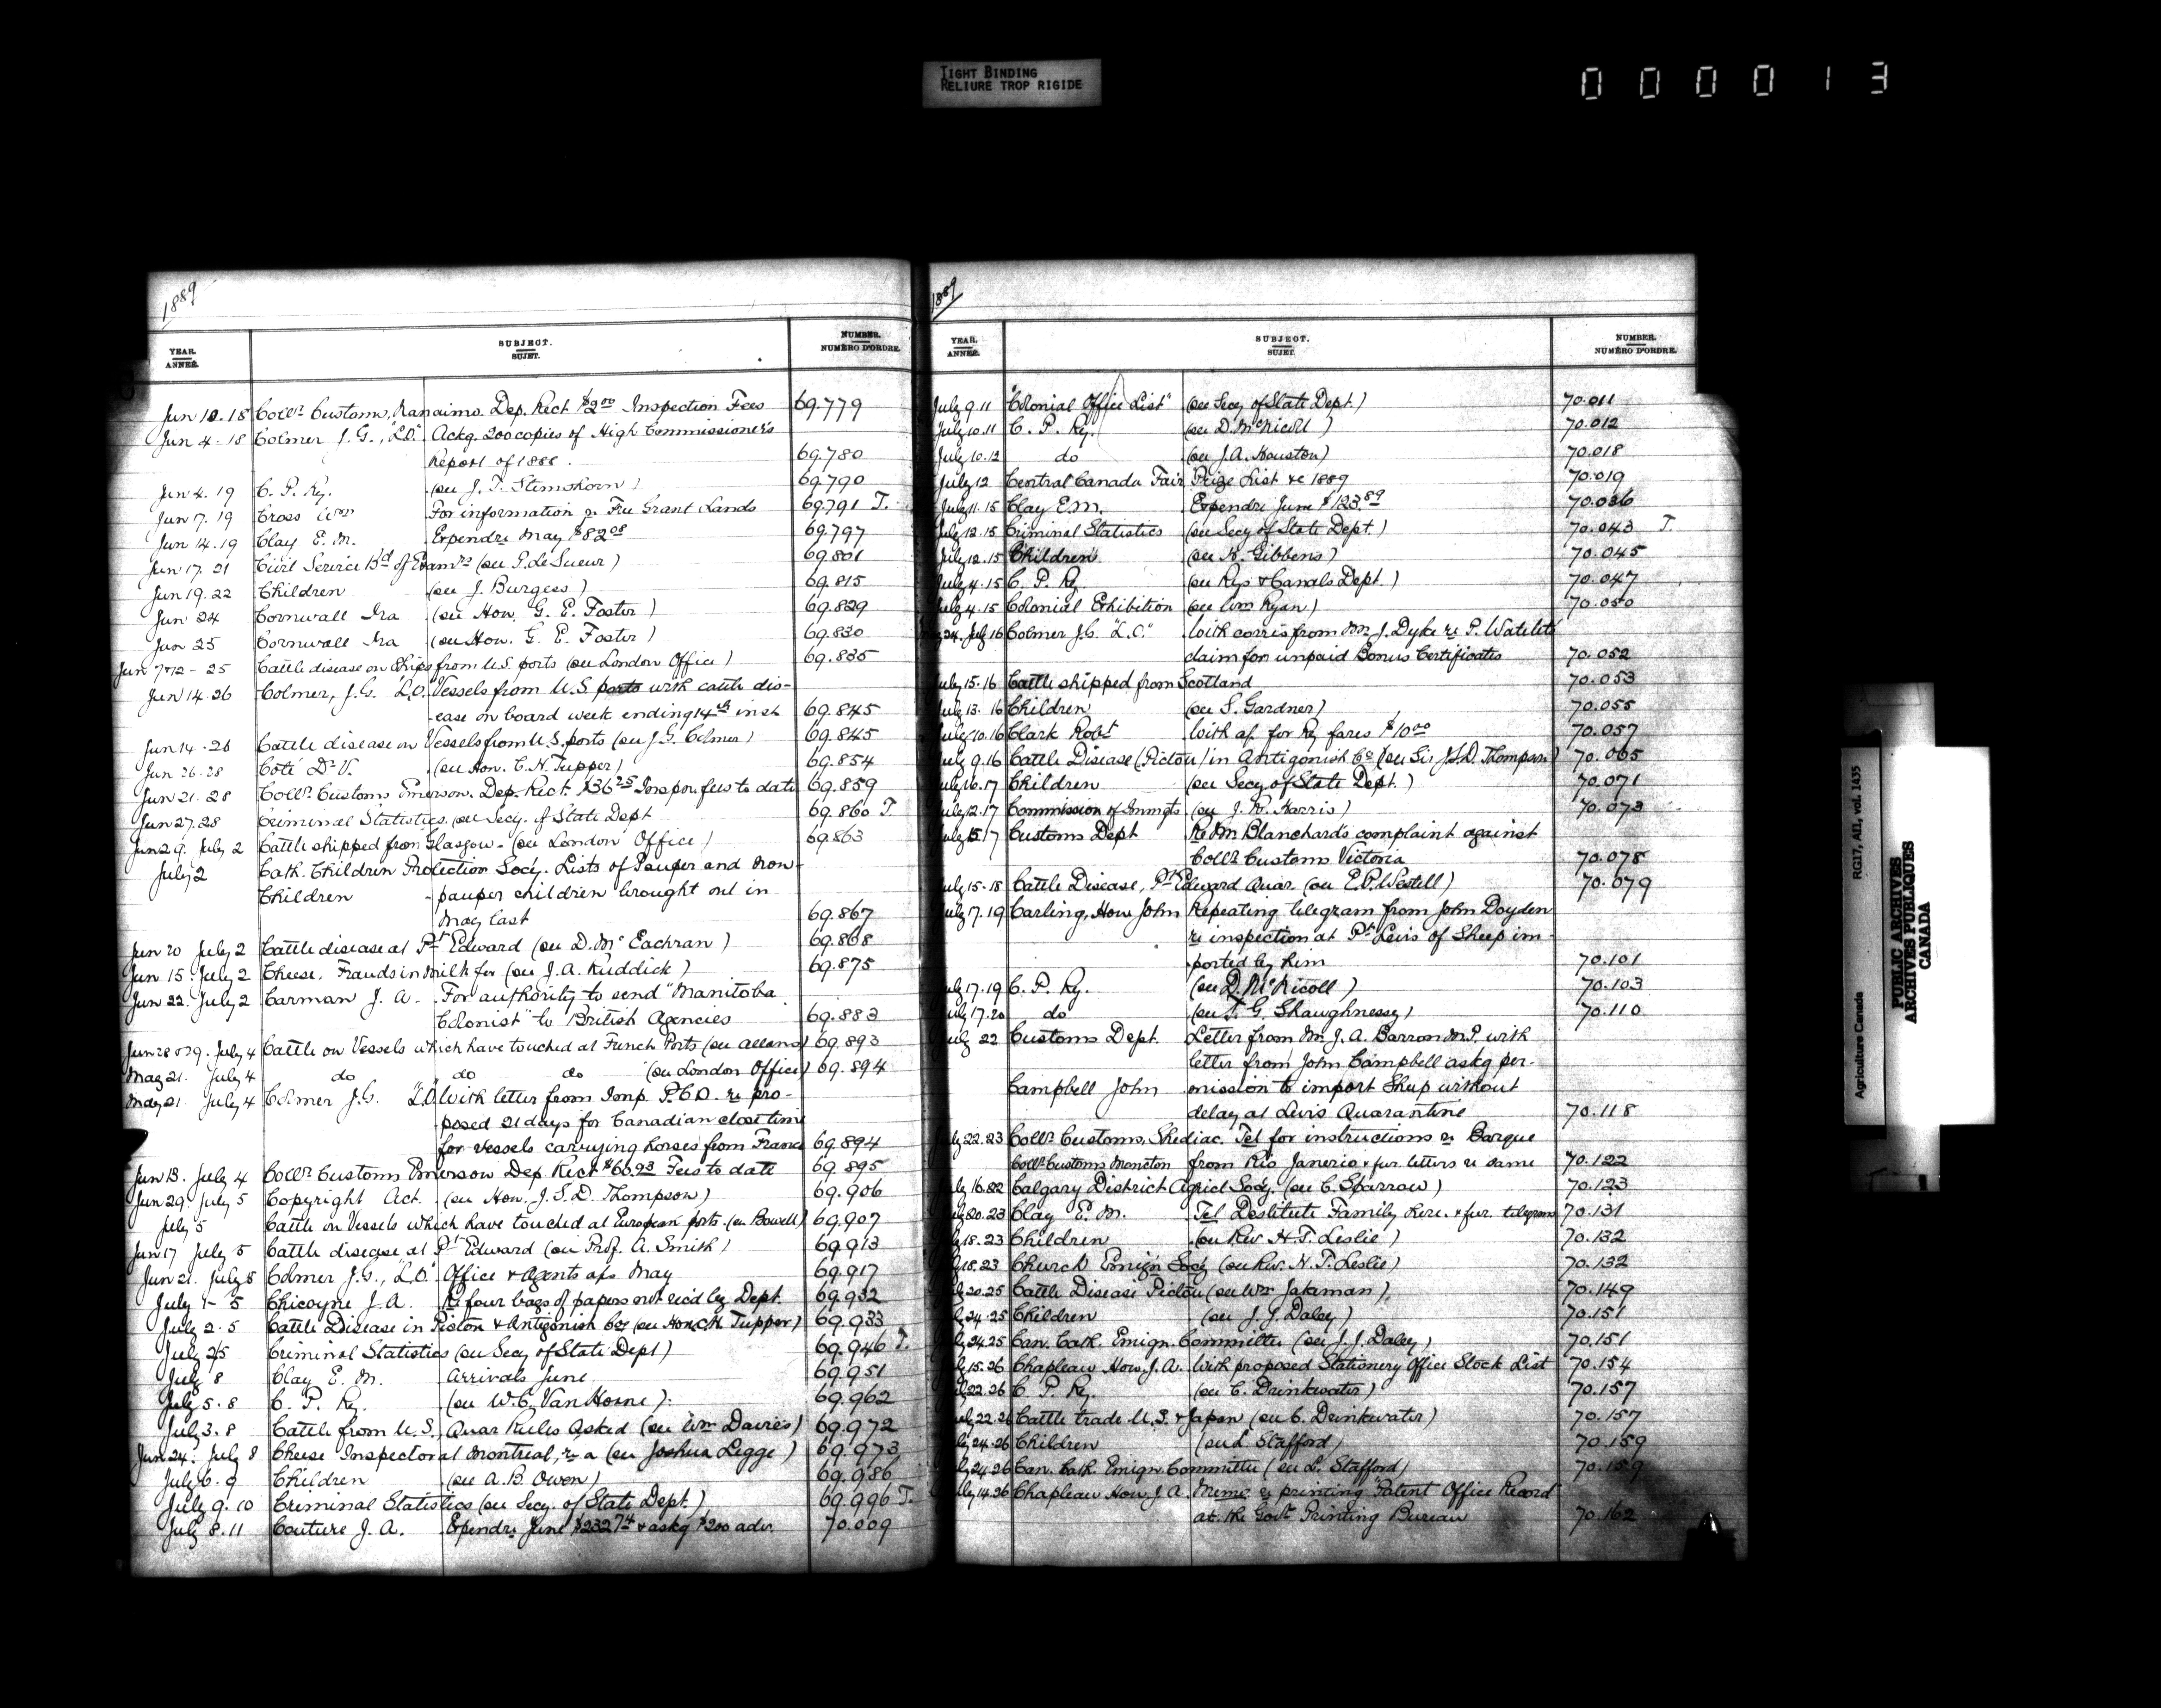 TIGHT BINDING
RELIURE TROP RIGIDE
000013
1889
YEAR. ANNÉE. SUBJECT. SUJET. NUMBER. NUMÉRO D'ORDRE.
Jun 10.18 Collr. Customs, Nanaimo. Dep. Rect $2.00 Inspection Fees 69.779
Jun 4.18 Colmer J.G., "L.O." Ackg. 200 copies of High Commissioner's
Report of 1888. 69.780
Jun 4.19 C. P. Ry. (see J. T. ) 69.790
Jun 17.19 Cross Wm For information re Free Grant Lands 69.791 T.
Jun 14.19 Clay E. M. Expendre May $82.08 69.797
Jun 17.21 Civil Service Bd of Examrs (see P. Le Sueur) 69.801
Jun 19.22 Children (see J. Burgess) 69.815
Jun 24 Cornwall Ira (see Hon. G. E. Foster) 69.829
Jun 25 Cornwall Ira (see Hon. G. E. Foster) 69.830
Jun 7&12-25 Cattle disease on Ships from U.S. ports (see London Office) 69.835
Jun 14.26 Colmer, J.G. "L.O." Vessels from U.S. ports with cattle dis-
ease on board week ending 14th inst 69.845
Jun 14.26 Cattle disease on Vessels from U.S. ports (see J.G. Colmer) 69.845
Jun 26.28 Coté Dr V. (see Hon. C.H. Tupper) 69.854
Jun 21.28 Collr. Customs Emerson. Dep. Rect. $36.25 Inspon. fees to date 69.859
Jun 27.28 Criminal Statistics. (see Secy. of State Dept 69.860 T.
Jun 29. July 2 Cattle shipped from Glasgow - (see London Office) 69.863
July 2 Cath. Children Protection Socy. Lists of Pauper and Non-
Children pauper children brought out in
May last 69.867
Jun 20 July 2 Cattle disease at Pt. Edward (see D. McEachran) 69.868
Jun 15. July 2 Cheese, Frauds in milk for (see J.A. Ruddick) 69.875
Jun 22. July 2 Carman J. A. For authority to send "Manitoba
Colonist" to British Agencies 69.883
Jun 28 & 29. July 4 Cattle on Vessels which have touched at French Ports (see Allans) 69.893
May 21. July 4 do do do (see London Office) 69.894
May 21. July 4 Colmer J.G. "L.O." With letter from Imp. P.C.O. re pro-
posed 21 days for Canadian close time
for vessels carrying horses from France 69.894
Jun 13. July 4 Collr. Customs Emerson Dep Rect $60.93 Fees to date 69.895
Jun 29. July 5 Copyright Act. (see Hon. J.S.D. Thompson) 69.906
July 5 Cattle on Vessels which have touched at European ports. (see Bowell) 69.907
Jun 17 July 5 Cattle disease at Pt. Edward (see Prof. A. Smith) 69.913
Jun 21. July 5 Colmer J.G., "L.O." Office & Agents a/cs May 69.917
July 1-5 Chicoyne J. A. Re four bags of papers not rec'd by Dept. 69.932
July 2.5 Cattle Disease in Pictou & Antigonish Cos (see Hon. C.H. Tupper) 69.933
July 2.5 Criminal Statistics (see Secy of State Dept) 69.946 T.
July 8 Clay E. M. Arrivals June 69.951
July 5.8 C. P. Ry. (see W. C. Van Horne). 69.962
July 3.8 Cattle from U.S., Quar Rules Asked (see Wm Davies) 69.972
Jun 24. July 8 Cheese Inspector at Montreal, re a (see Joshua Legge) 69.973
July 6.9 Children (see A.B. Owen) 69.986
July 9.10 Criminal Statistics (see Secy. of State Dept.) 69.996 T.
July 8.11 Couture J. A. Expendre June $232.74 & askg $200 adv. 70.009
1889
YEAR. ANNÉE. SUBJECT. SUJET. NUMBER. NUMÉRO D'ORDRE.
July 9.11 "Colonial Office List" (see Secy of State Dept.) 70.011
July 10.11 C. P. Ry. (see D. McNicoll) 70.012
July 10.12 do (see J.A. Houston) 70.018
July 12 Central Canada Fair Prize List &c 1889 70.019
July 11.15 Clay E.M. Expendre June $123.89 70.036
July 12.15 Criminal Statistics (see Secy of State Dept.) 70.043 T.
July 12.15 Children (see H. Gibbens) 70.045
July 4.15 C. P. Ry. (see Rys & Canals Dept.) 70.047
July 4.15 Colonial Exhibition (see Wm Ryan) 70.050
24. July 16 Colmer J.G. "L.O." With corres from Mr J. Dyke re P.
claim for unpaid Bonus Certificates 70.052
July 15.16 Cattle shipped from Scotland 70.053
July 13.16 Children (see S. Gardner) 70.055
July 10.16 Clark Robt With a/c for Ry fares $10.00 70.057
July 9.16 Cattle Disease (Pictou) in Antigonish Co (see Sir J.S.D. Thompson) 70.065
July 16.17 Children (see Secy of State Dept.) 70.071
July 12.17 Commission of Inmgts. (see J. H. Harris) 70.073
July 15.17 Customs Dept Re Mr Blanchard's complaint against
Collr. Customs Victoria 70.078
July 15-18 Cattle Disease, Pt. Edward Quar. (see E.P. Westell) 70.079
July 17.19 Carling, Hon John Repeating telegram from John Doyden
re inspection at Pt. Levis of Sheep im-
ported by him 70.101
July 17.19 C. P. Ry. (see D. McNicoll) 70.103
July 17.20 do (see T. G. Shaughnessy) 70.110
July 22 Customs Dept. Letter from Mr J. A. Barron M.P. with
letter from John Campbell askg per-
Campbell John mission to import Sheep without
delay at Levis Quarantine 70.118
July 22.23 Collr. Customs, Shediac. Tel for instructions re Barque
Collr. Customs Moncton from Rio Janerio & fur. letters re same 70.122
July 16.22 Calgary District Agricl Socy. (see C. Sparrow) 70.123
July 20.23 Clay E. M. Tel Destitute Family Rere. & fur. telegrams 70.131
18.23 Children (see Rev. H. T. Leslie) 70.132
18.23 Church Emign Socy (see Rev. H. T. Leslie) 70.132
20.25 Cattle Disease Pictou (see Wm Jakeman) 70.149
24.25 Children (see J. J. Daley) 70.151
24.25 Can. Cath. Emign. Committee (see J. J. Daley) 70.151
15.26 Chapleau Hon. J. A. With proposed Stationery Office Stock List 70.154
22.26 C. P. Ry. (see C. Drinkwater) 70.157
July 22.26 Cattle trade U.S. & Japan (see C. Drinkwater) 70.157
24.26 Children (see L. Stafford) 70.159
24.26 Can. Cath. Emign. Committee (see L. Stafford) 70.159
July 14.26 Chapleau Hon. J. A. Memo re printing "Patent Office Record"
at the Govt. Printing Bureau 70.162
RG17, AII, vol. 1435
Agriculture Canada
PUBLIC ARCHIVES
ARCHIVES PUBLIQUES
CANADA